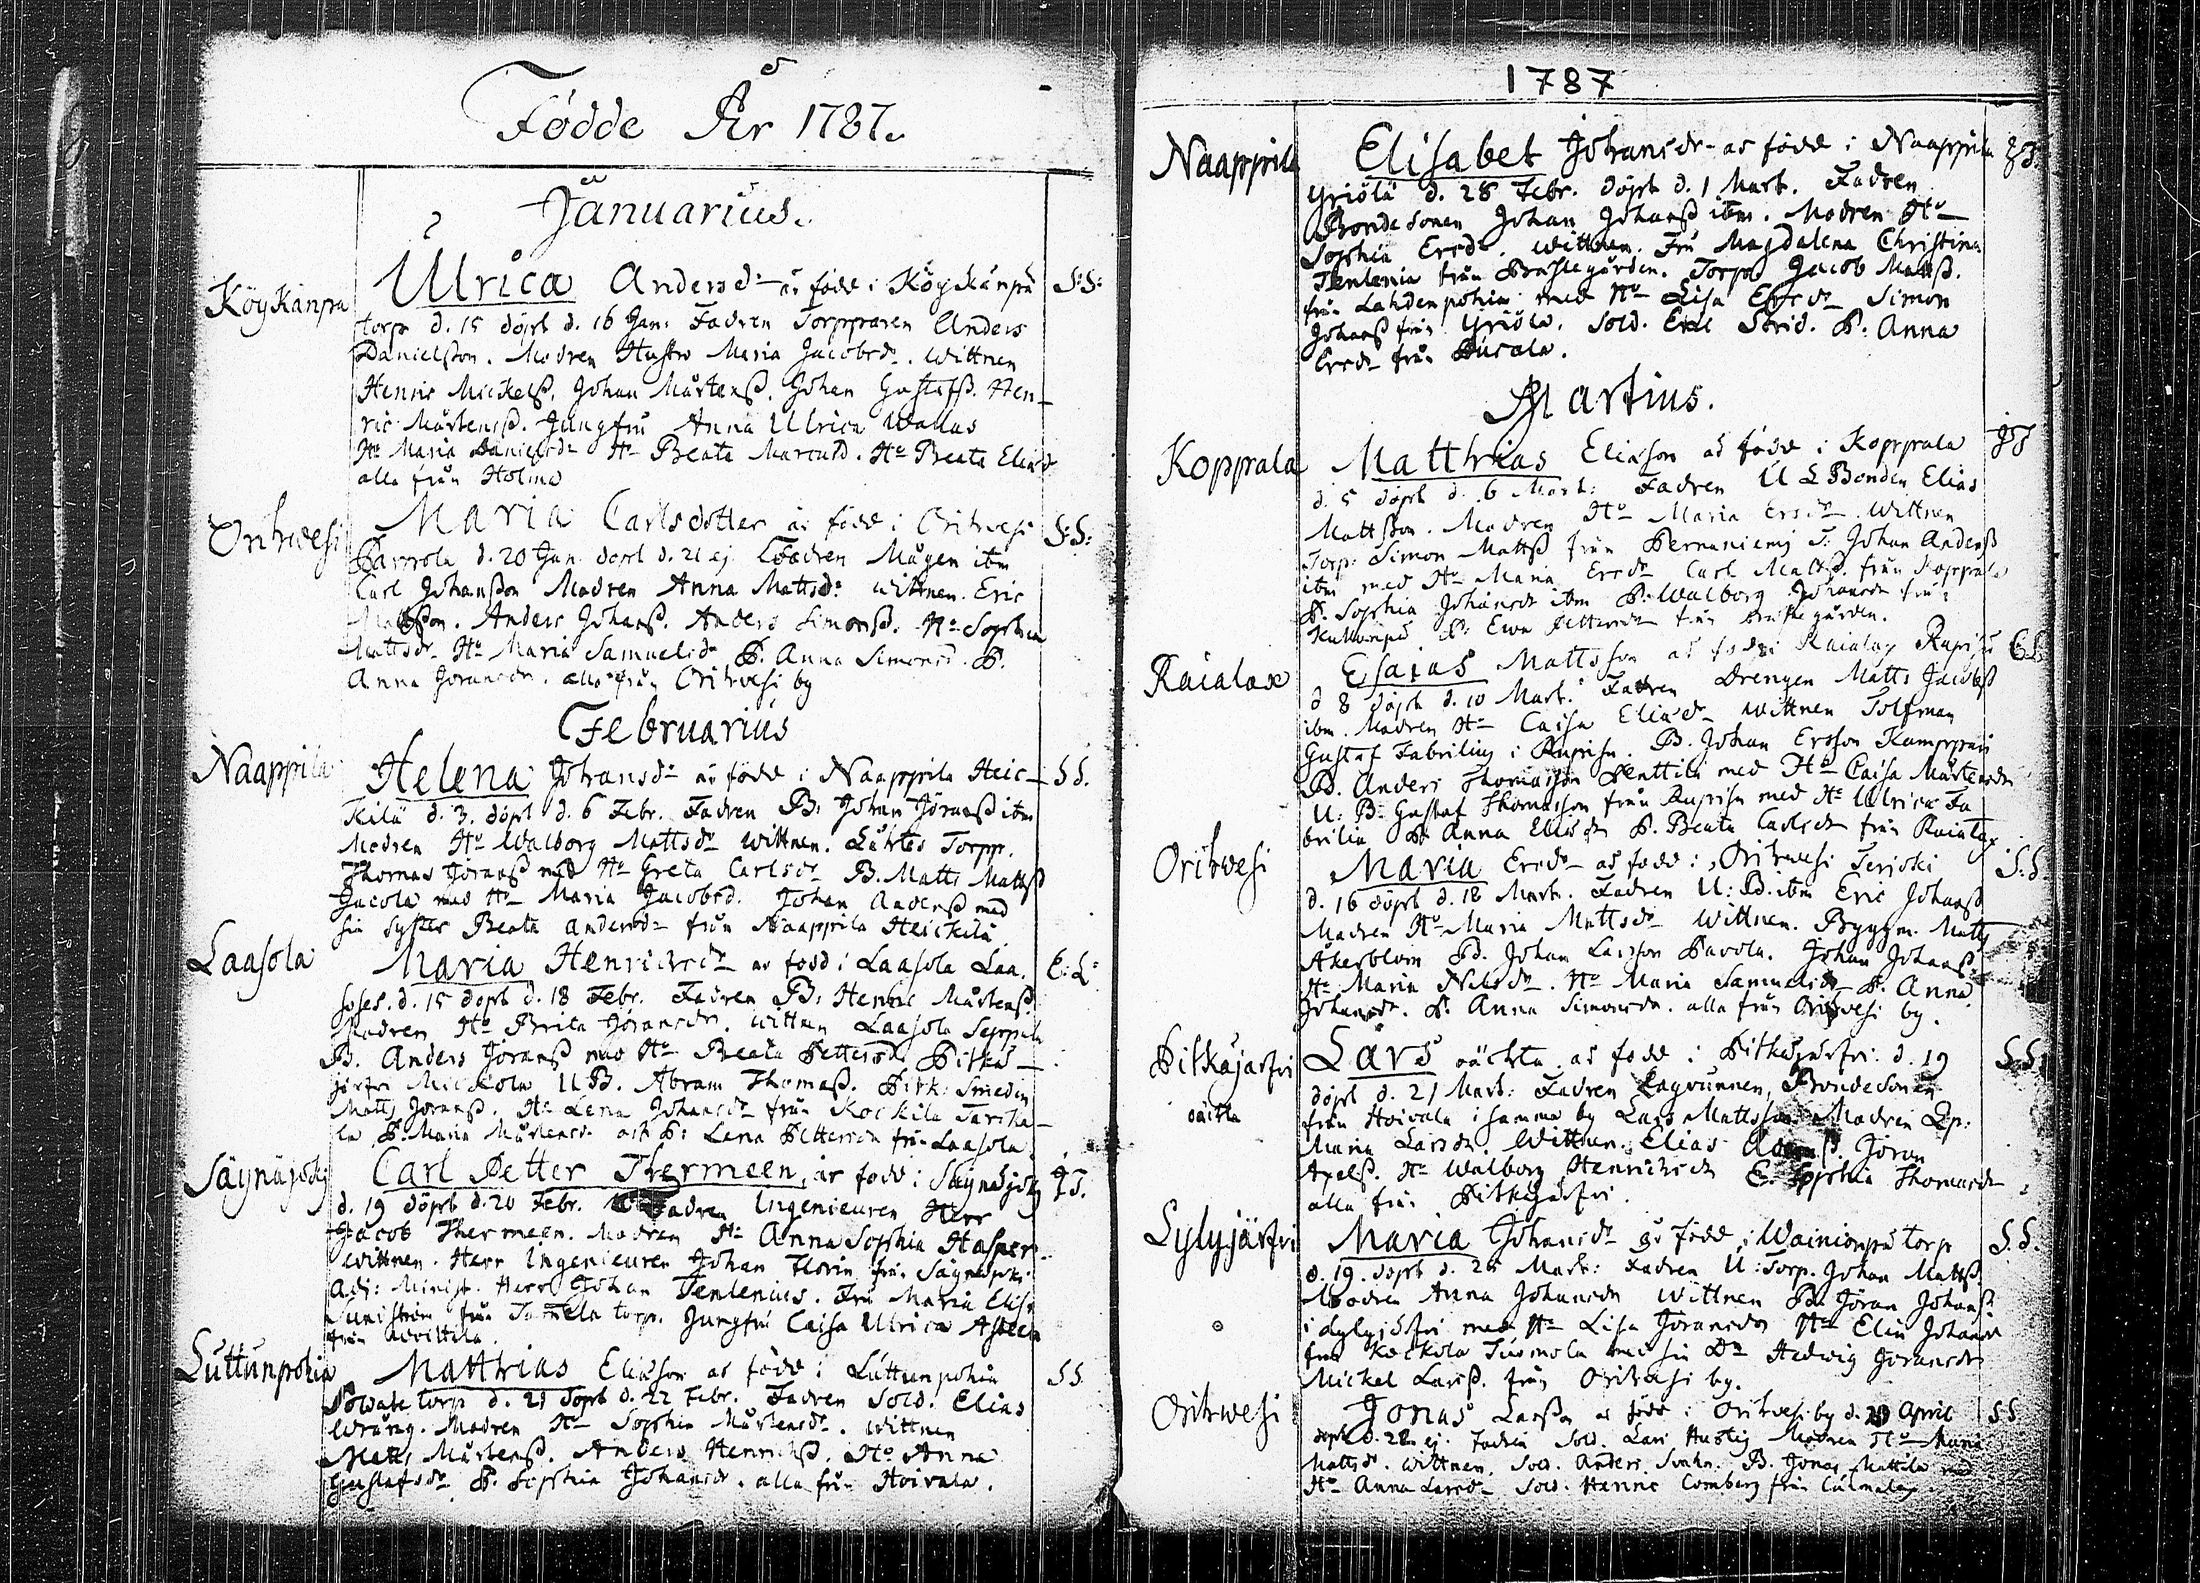 Födde År 1787.
Januarius.
Köykänpä
Ulrica Andersd: är född i Köykänpä
S:S:
torp d. 15 döpt d. 16 Jan: Fadren Torpparen Anders
Danielsson. Modren Hustro Maria Jacobsdr. Wittnen
Henric Mickelsß. Johan Mårtensß. Johan Gustafsß. Hen-
ric Mårtensß. Jungfru Anna Ulrica Wallus
Ho Maria Danielsdr Ho Beata Marcusd. Ho Beata Eliæd
alla från Holma
Orihwesi
Maria Carlsdotter är född i Orihwesi
S:S:
Pavola d. 20 Jan. döpt d. 21 ej. Fadren Mågen ibm
Carl Johansson Modren Anna Mattsd: Wittnen. Eric
Mattsson. Anders Johansß. Anders Simonsß. Ho Sophia
Mattsdr. Ho Maria Samuelsdr P. Anna Simonsd. P.
Anna Joransdr. alla från Orihwesi by
Februarius
Naappila
Helena Johansdr är född i Naappila Heic-
S S.
kilä d. 3. döpt d. 6 Febr. Fadren B: Johan Jöransß ibm
Modren Ho Walborg Mattsdr Wittnen. Torpp.
Thomas Jöransß med Ho Greta Carlsdr B. Matts Mattsß
Jacola med Ho Maria Jacobsd. Johan Andersß med
sin syster Beata Andersdr från Naappila Heickilä
Laasola
Maria Henricsdr är född i Laasola Laa-
E:L:
soses. d. 15 döpt d. 18 Febr. Fadren B: Henric Mårtensß.
Modren Ho Brita Jöransdr. Wittnen Laasola Seppälä
B. Anders Jöransß med Ho Beata Pettersdr Pitkä-
järfvi Mickola UB. Abram Thomasß. Pitk: Smeden
Matts Joransß. Ho Lena Johansdr från Kockila
la P. Maria Mårtensdr och P: Lena Pettersdr från Laasola
Säynäjoki
Carl Petter Thermeen, är född i Säynäjoky
J T.
d. 19 döpt d. 20 Febr. Fadren Ingenieuren Herr
Jacob Thermeen. Modren Ho Anna Sophia Hasper.
Wittnen. Herr Ingenieuren Johan Florin från Säynäjoki
Adj: Minist. Herr Johan Tenlenius. Fru Maria Elis.
Sunström från torp. Jungfru Caisa Ulrica
från
Luttunpohia
Matthias Eliæson är född i Luttunpohia
S S
torp d. 21 döpt d. 22 Febr. Fadren Sold. Elias
Wrång. Modren Ho Sophia Mårtensdr. Wittnen
Matts Mårtensß. Anders Henricsß. Ho Anna
Gustafsdr P. Sophia Johansdr. alla från Hoivala.
1787
Naappila
Elisabet Johansdr är född i Naappila
J T.
Yriölä d. 28 Febr. döpt d. 1 Mart. Fadren
Bondesonen Johan Johansß ibm. Modren Ho
Sophia Ersdr. Wittnen. Fru Magdalena Christina
Tenlenia från Prästegården. Torpp Jacob Mattsß.
från Lahdenpohia med Ho Lisa Ersdr Simon
Johansß från Yriölä. Sold. Eric Strid. P. Anna
Ersdr från Pusala.
Martius.
Koppala
Matthias Eliæson är född i Koppala
J T
d. 5 döpt d. 6 Mart: Fadren U L Bonden Elias
Mattsson. Modren Ho Maria Ersdr. Wittnen
Torp: Simon Mattsß från Pernaniemi T: Johan Andersß
ibm med Ho Maria Ersdr Carl Mattsß. från Koppala
P. Sophia Johansdr ibm P. Walborg Johansdr från
P: Ewa Pettersdr från Prästegården.
Raialax
Esaias Mattsson är född i Raialax Rapisu
E:L
d 8 döpt d. 10 Mart. Fadren Drengen Matts Jacobsß
ibm. Modren Ho Caisa Eliæsdr Wittnen Tolfman
Gustaf Fabrilius i Rapisu. B. Johan Ersson Kamppari
B. Anders Thomasson Penttilä med Ho Caisa Mårtensdr
U. B: Gustaf Thomasson från Rapisu med Ho Ulrica Fa
brilia P: Anna Eliædr P. Beata Carlsdr från Raialax
Orihwesi
Maria Ersdr är född i Orihwesi Terjoki
S:S.
d. 16 döpt d. 18 Mart. Fadren U: B. ibm Eric Johansß
Modren Ho Maria Mattsdr Wittnen. Byggm. Matts
Åkerblom B. Johan Larsson Pavola. Johan Johansß.
Ho Maria Nilsdr. Ho Maria Samuelsdr P. Anna
Johansdr. P. Anna Simonsdr. alla från Orihwesi by.
Pitkäjärfvi
Lars oäckta är född i Pitkäjärfvi d. 19
S S
oäckta
döpt d. 21 Mart: Fadren Lagvunnen, Bondesonen
från Hoivala i samma by Lars Mattsson Modren Qp.
Maria Larsdr. Wittnen. Elias Jöran
Axelsß. Ho Walborg Henricsdr E. Sophia Thomasdr
alla från Pitkäjärfvi.
Lylyjärfvi
Maria Johansdr är född i Wainionpä torp
S. S.
d. 19. döpt d. 25 Mart: Fadren U: Torp. Johan Mattsß.
Modren Anna Johansdr Wittnen B. Jöran Johansß
i Lylyjärfvi med Ho Lisa Joransdr Ho Elin Johansdr
från Kockola med sin Dr Hedwig Joransdr
Mickel Larsß. från Orihwesi by.
Orihwesi
Jonas Larsson är född i Orihwesi by d. 20 April
S S
döpt d. 22 ej. Fadren Sold. Lars Hurtig Modren Ho Maria
Mattsdr. Wittnen. Sold. Anders B. Jonas Mattila med
Ho Anna Larsdr Sold. Henric Comberg från